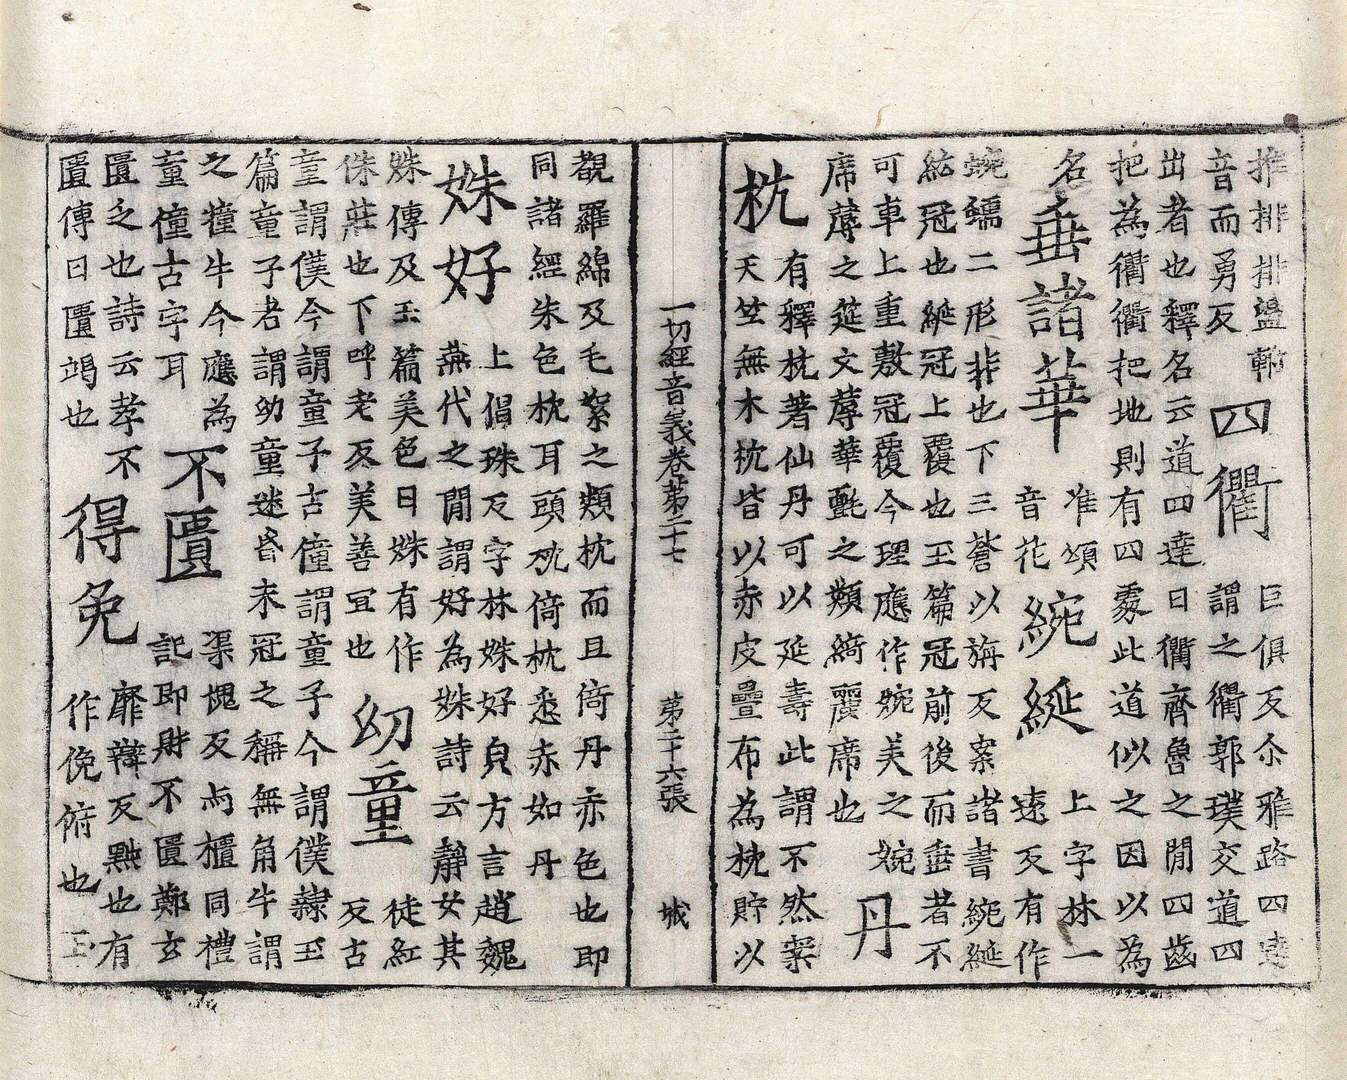 推排排盪軵
音而勇反
四衢
巨俱反尒雅路四達
謂之衢郭璞交道四
出者也釋名云道四達曰衢齊魯之間四齒
把為衢衢把地則有四處此道似之因以為
名
垂諸華
准頌
音花
綩綖
上字林一
遠反有作
蜿蠕二形非也下三蒼以旃反案諸書綩綖
紘冠也綖冠上覆也玉篇冠前後而垂者不
可車上重敷冠覆今理應作婉美之婉
席蓐之筵文蓐華氈之類綺麗席也
丹
枕
有釋枕著仙丹可以延壽此謂不然案
天竺無木枕皆以赤皮疊布為枕貯以
一切經音義卷苐二十七 苐二十六張 城
覩羅綿及毛絮之類枕而且倚丹亦色也即
同諸經朱色枕耳頭枕倚枕悉赤如丹
姝好
上倡珠反字林姝好皃方言趙魏
燕代之間謂好為姝詩云靜女其
姝傳及玉篇美色曰姝有作
侏莊也下呼老反美善冝也
幼童
徒紅
反古
童謂僕今謂童子古僮謂童子今謂僕隸玉
篇童子者謂幼童迷昏未冠之稱無角牛謂
之犝牛今應為
童僮古字耳
不匱
渠愧反尚櫃同禮
記即財不匱鄭玄
匱乏也詩云孝不
匱傳曰匱竭也
得免
靡辯反黜也有
作俛俯也玉